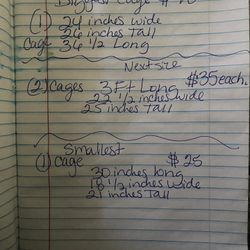 Biggest Cage $40
(1) 24 inches wide
26 inches Tall
Cage 36 1/2 Long
Next size
(2) Cages 3 Ft Long $35 each.
22 1/2 inches wide
25 inches Tall
Smallest
(1) Cage $25
30 inches long
18 1/2 inches wide
21 inches Tall